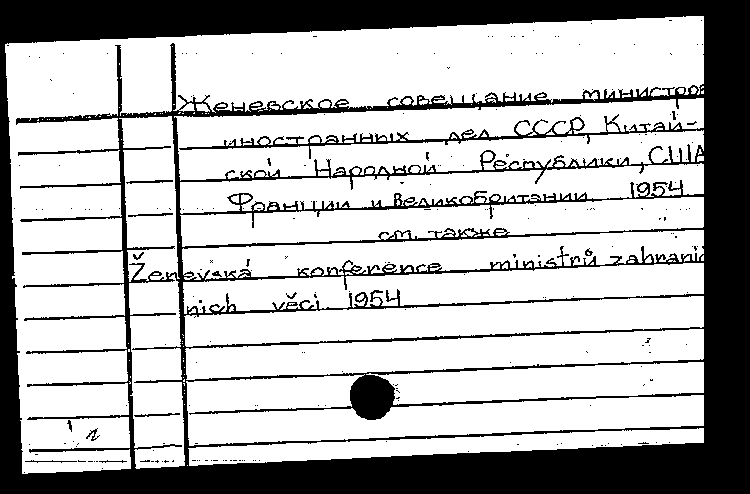 Женевское совещание министров
иностранных дел СССР, Китай-
ской Народной Республики, США
Франции и Великобритании. 1954
см. также
Ženevská konference ministrů zahranič
nich věci 1954